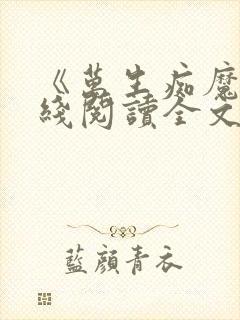 《萬生痴魔
綫閱讀全文
藍顏青衣